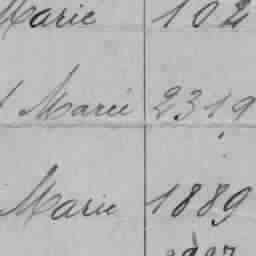 Marie 102
Marie 2319
Marie 1889